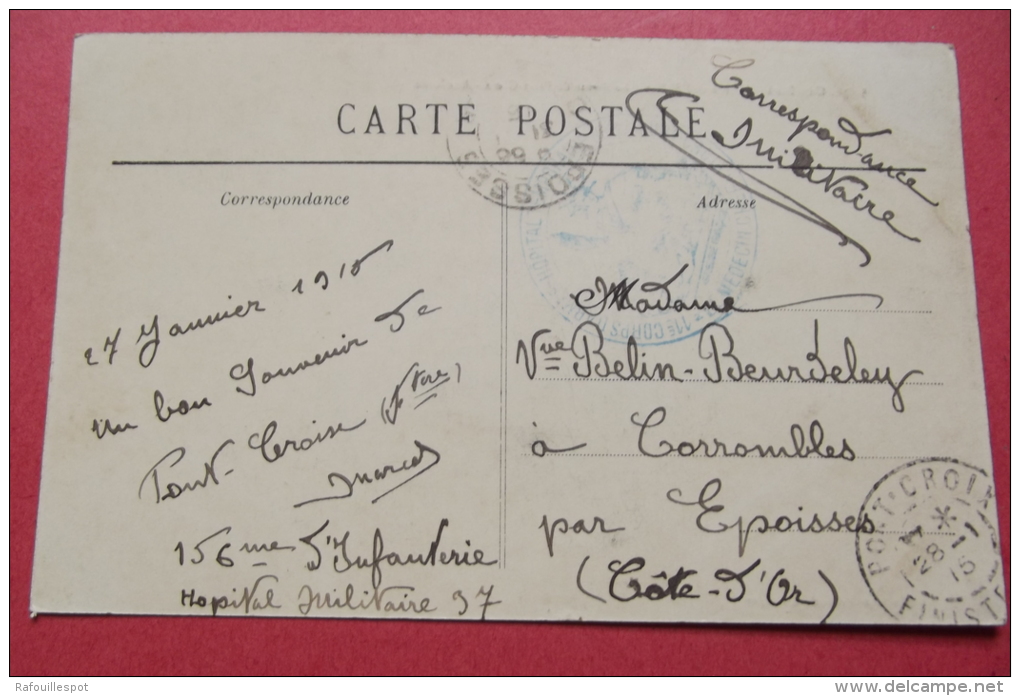 CARTE POSTALE
Correspondance
Militaire
Correspondance
Adresse
27 Janvier 1915
un bon Souvenir de
Pont-Croix (Ftère)
Marcel
156me d'Infanterie
Hopital Militaire 37
Madame
Vve Belin-Beurdeley
à Corrombles
par Epoisses
(Côte-d'Or)
EPOISSES
11e CORPS
HOPITAL
MEDECIN
PONT-CROIX
28-1
15
FINIST
Rafouillespot
delcampe.net